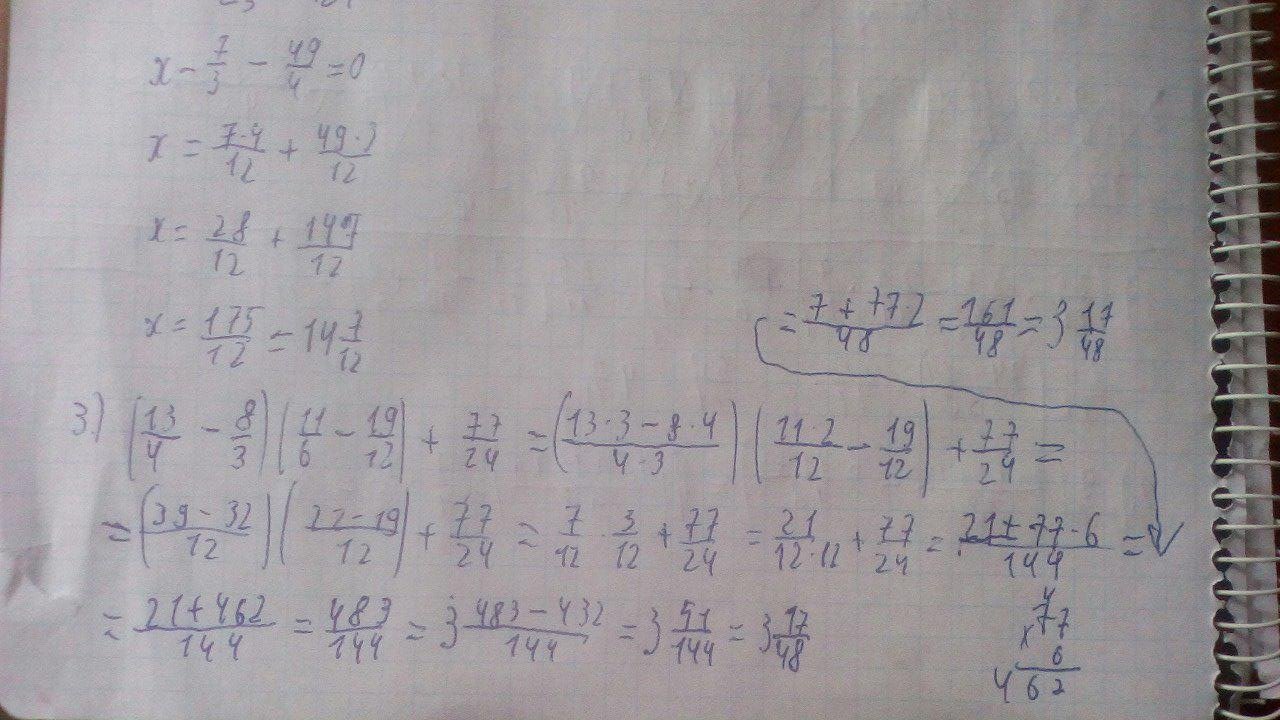 x - 7/3 - 49/4 = 0
x = 7·4/12 + 49·3/12
x = 28/12 + 147/12
x = 175/12 = 14 7/12
= 7 + 77·2/48 = 161/48 = 3 17/48
3.) (13/4 - 8/3) (11/6 - 19/12) + 77/24 = (13·3 - 8·4/4·3) (11·2/12 - 19/12) + 77/24 =
= (39 - 32/12) (22 - 19/12) + 77/24 = 7/12 · 3/12 + 77/24 = 21/12·12 + 77/24 = 21 + 77·6/144 =
= 21 + 462/144 = 483/144 = 3 483 - 432/144 = 3 51/144 = 3 17/48
4
x 77
6
462